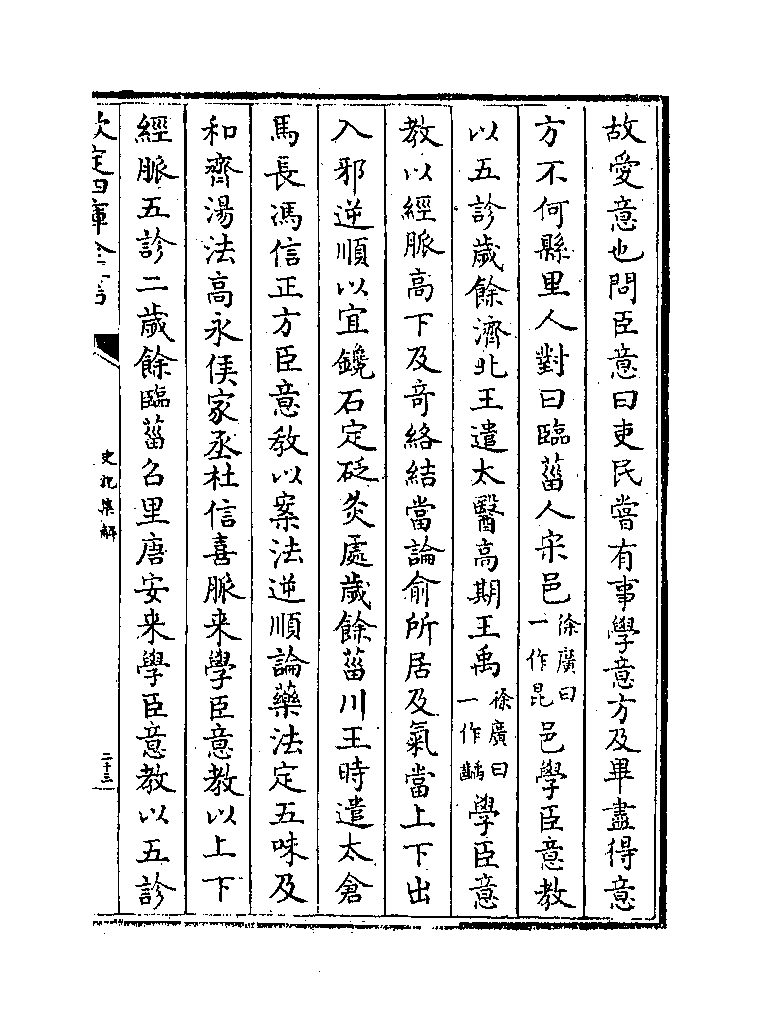 故愛意也問臣意曰吏民嘗有事學意方及畢盡得意
方不何縣里人對曰臨菑人宋邑徐廣曰一作昆邑學臣意教
以五診歲餘濟北王遣太醫高期王禹徐廣曰一作齲學臣意
教以經脈高下及奇絡結當論俞所居及氣當上下出
入邪逆順以宜鑱石定砭灸處歲餘菑川王時遣太倉
馬長馮信正方臣意教以案法逆順論藥法定五味及
和齊湯法高永侯家丞杜信喜脈来學臣意教以上下
經脈五診二歲餘臨菑召里唐安来學臣意教以五診
欽定四庫全書
史記集解
二十三